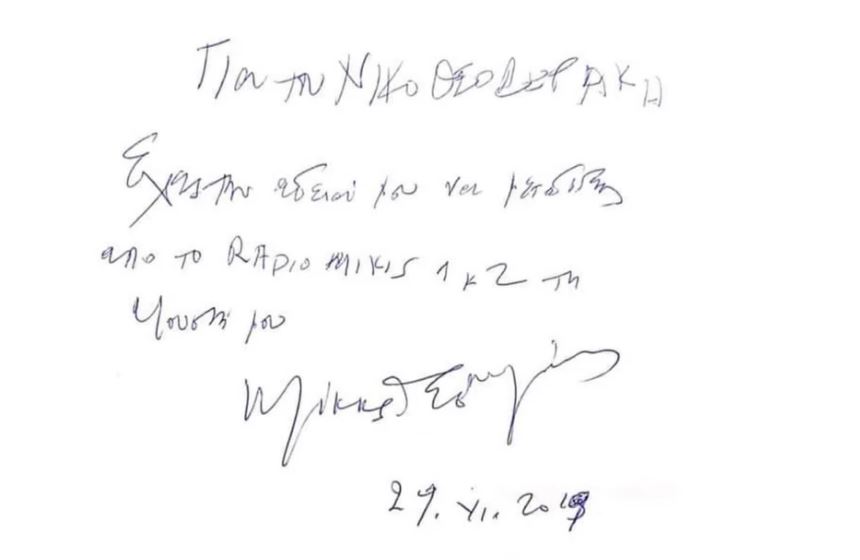 Για τον ΝΙΚΟ ΘΕΟΔΩΡΑΚΗ
Εχεις την αδεια μου να μεταδιδεις
απο το RADIO MIKIS 1 κ 2 τη
μουσικη μου
Μίκης Θεοδωράκης
29. XI.